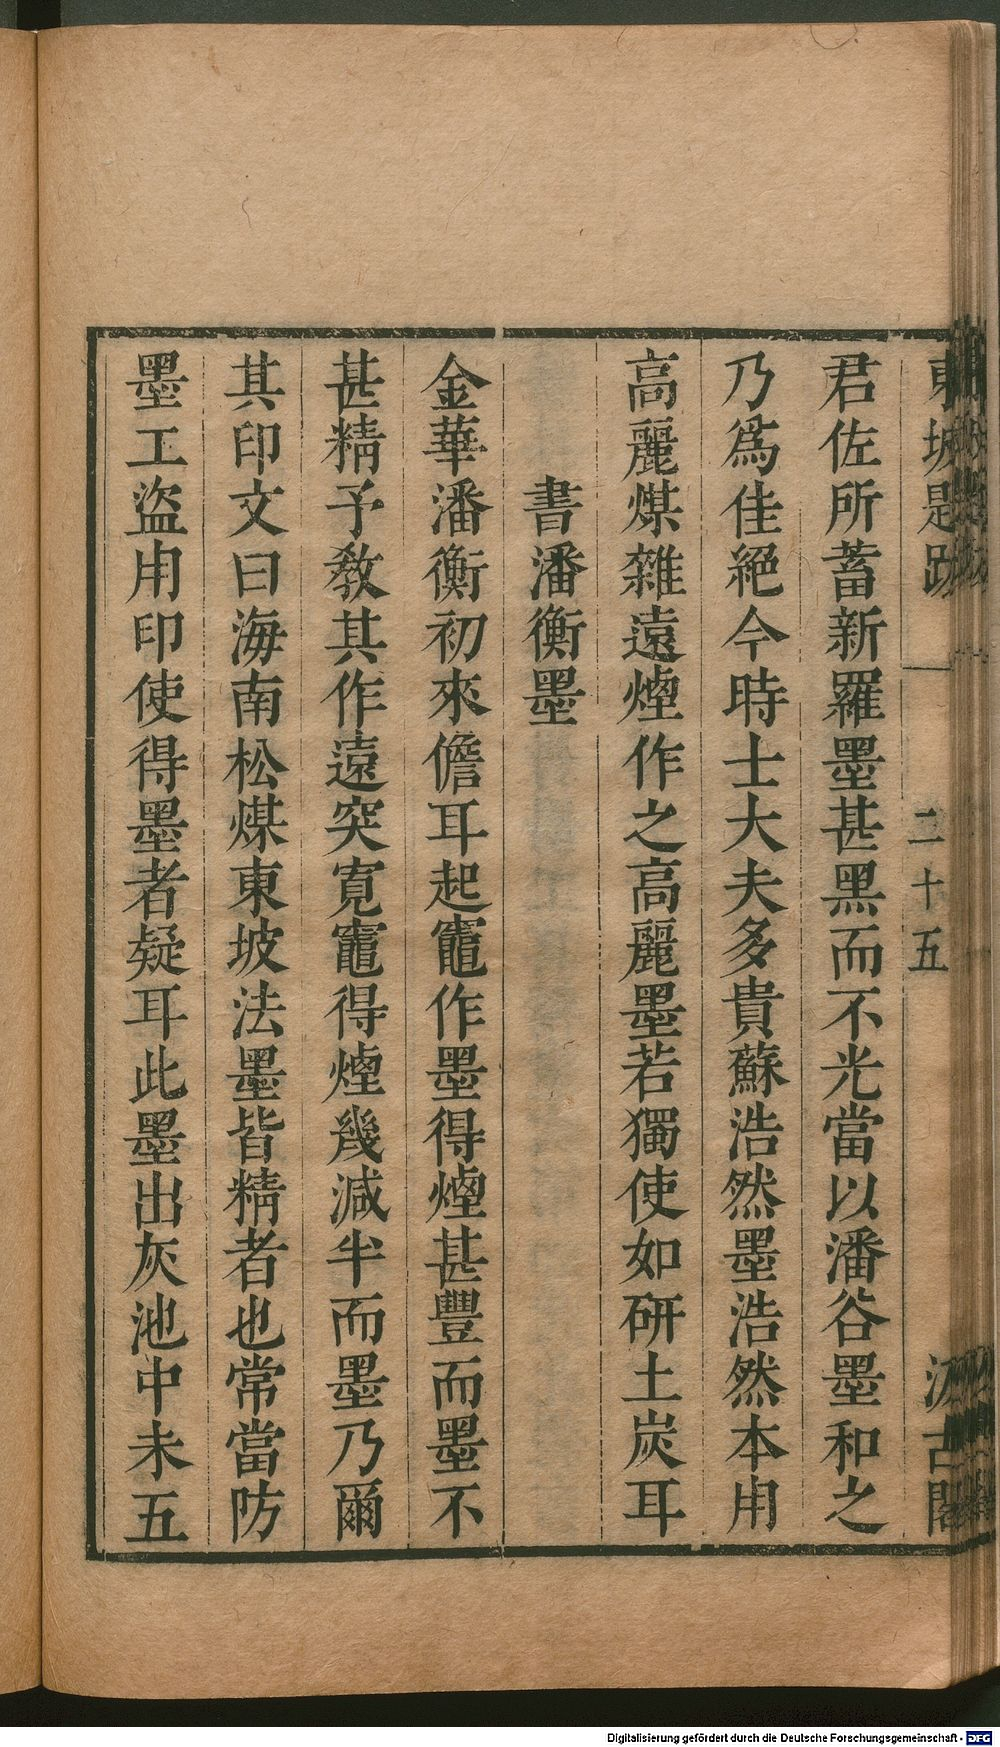 東坡題跋
二十五
汲古閣
君佐所蓄新羅墨甚黑而不光當以潘谷墨和之
乃爲佳絕今時士大夫多貴蘇浩然墨浩然本用
高麗煤雜遠煙作之高麗墨若獨使如研土炭耳
書潘衡墨
金華潘衡初來儋耳起竈作墨得煙甚豐而墨不
甚精予教其作遠突寬竈得煙幾減半而墨乃爾
其印文曰海南松煤東坡法墨皆精者也常當防
墨工盜用印使得墨者疑耳此墨出灰池中未五
Digitalisierung gefördert durch die Deutsche Forschungsgemeinschaft - DFG